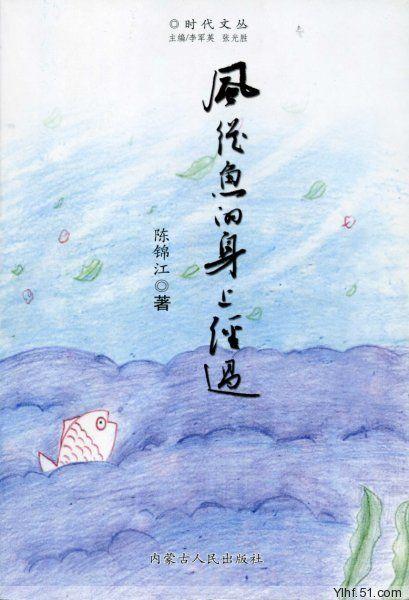 ◎时代文丛
主编/李军英 张光胜
風從魚的身上經過
陈锦江◎著
内蒙古人民出版社
Ylhf.51.com